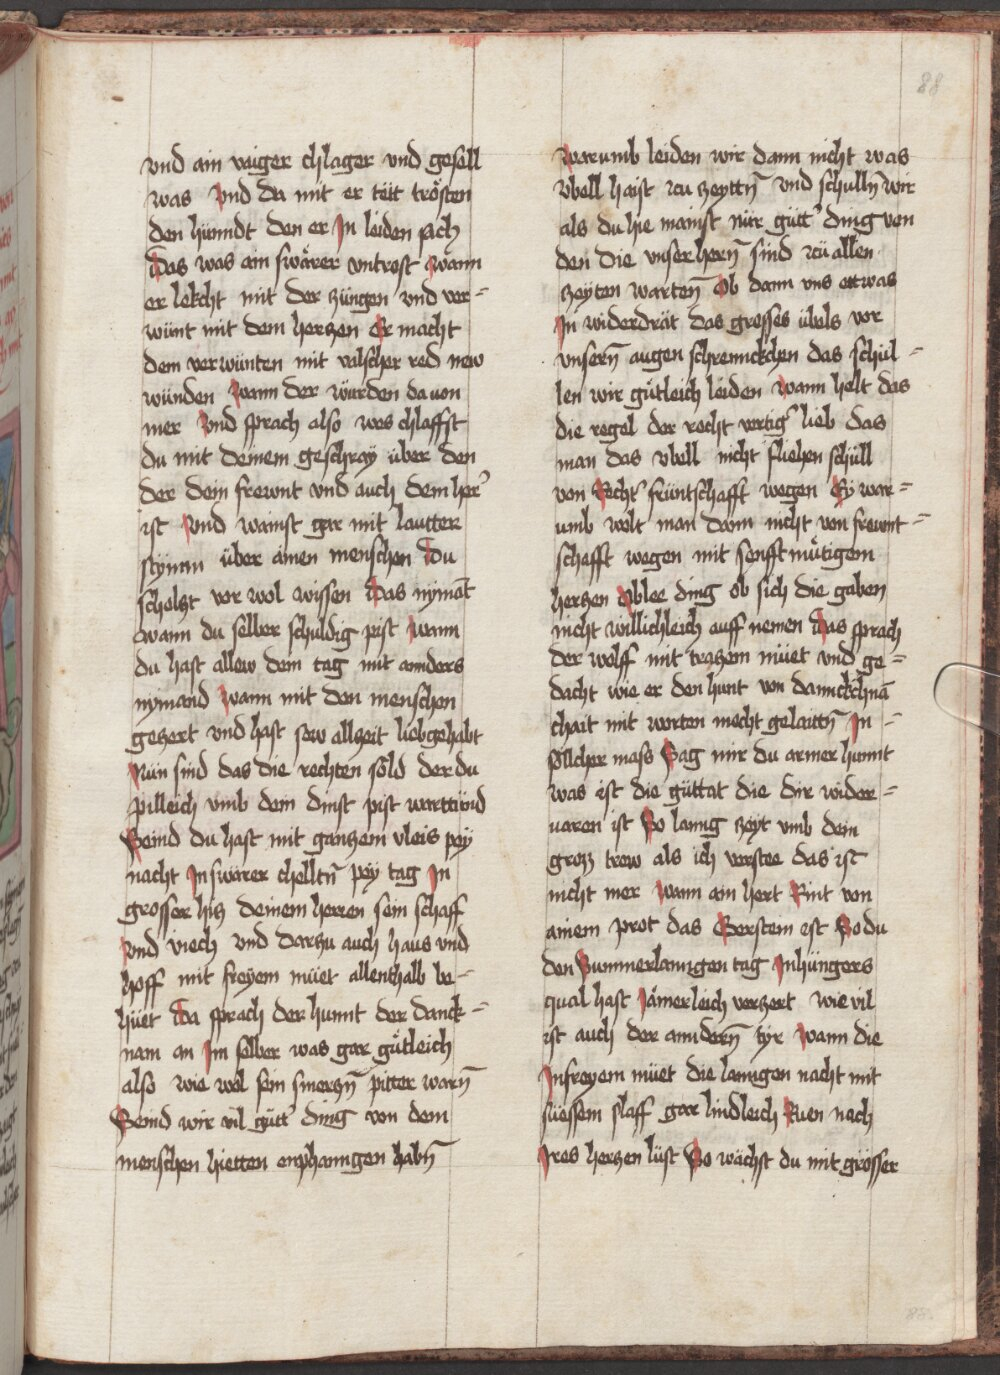 88
vnd ain vaiger chlager vnd gesell
was Vnd da mit er tett trösten
den hünndt den er In leiden sach
Das was ain swärer vntrost Wann
er lekcht mit der züngen vnd ver=
wünt mit dem herczen Er macht
dem verwünten mit valscher red new
wünden Wann der würden da von
mer Vnd sprach also wes chlaffst
du mit deinem geschray über den
der dein frewnt vnd auch dem her̉
ist Vnd wainst gar mit lautter
stymm über ainen menschen Du
scholst vor wol wissen Das nymāt
wann du selber schuldig pist Wann
du hast allew dem tag mit annders
nymand Wann mit den menschen
geczert vnd hast sew allzeit liebgehabt
Nün sind das die rechten söld der du
pilleich vmb dem dinst pist warttünd
Seind du hast mit ganczem vleis pey
nacht In swärer chelltn̄ pey tag In
grosser hicz deinem herren sein schaff
Vnd viech vnd darzu auch haus vnd
hoff mit freyem müet allenthalb be=
hüet Da sprach der hunnt der danck=
nam an Im selber was gar gütleich
also wie wol sein smerczn̄ pitter warn̄
Seind wir vil gütt̉ ding von dem
menschen hietten enphanngen habn̄
Warumb leiden wir dann nicht was
vbell haist zu zeyttn̄ vnd schulln̄ wir
als du hie mainst nür gütt̉ ding von
den die vnser hern̄ sind zü allen
zeyten warten̄ Ob dann vns ettwas
In widerdrät das grosses übels vor
vnsern̄ augen schremickchen das schül=
len wir gütleich leiden Wann helt das
die regel der recht vertig̉ lieb das
man das vbell nicht fliehen schüll
von Recht̉ früntschafft wegen Ey war=
umb wolt man dann nicht von frewnt=
schafft wegen mit senfftmütigem
herczen Vblee ding ob sich die gaben
nicht willichleich auff nemen Das sprach
der wolff mit traczem müet vnd ge=
dacht wie er den hunt von danckchnā
chait mit worten mocht gelaittn̄ In=
söllicher mass Sag mir du armer hunnt
was ist die güttat die dir wider=
uaren ist So lanng zeyt vmb dein
grosz trew als ich verstee das ist
nicht mer Wann ain hert Rint von
ainem prot das Gerstein est So du
den Summerlanngen tag In hüngers
qual hast Jämerleich verzert wie vil
ist auch der anndern̄ tyr Wann die
In freyem müet die lanngen nacht mit
süessem slaff gar lindleich Ruen nach
Ires herczen lüst So wachst du mit grosser
88.